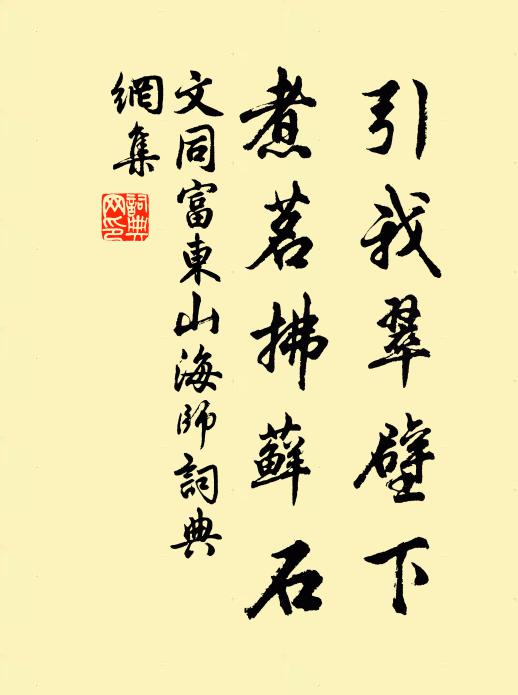 引我翠壁下
煮茗拂蘚石
文同富東山海師詞典
網集
詞典
网印